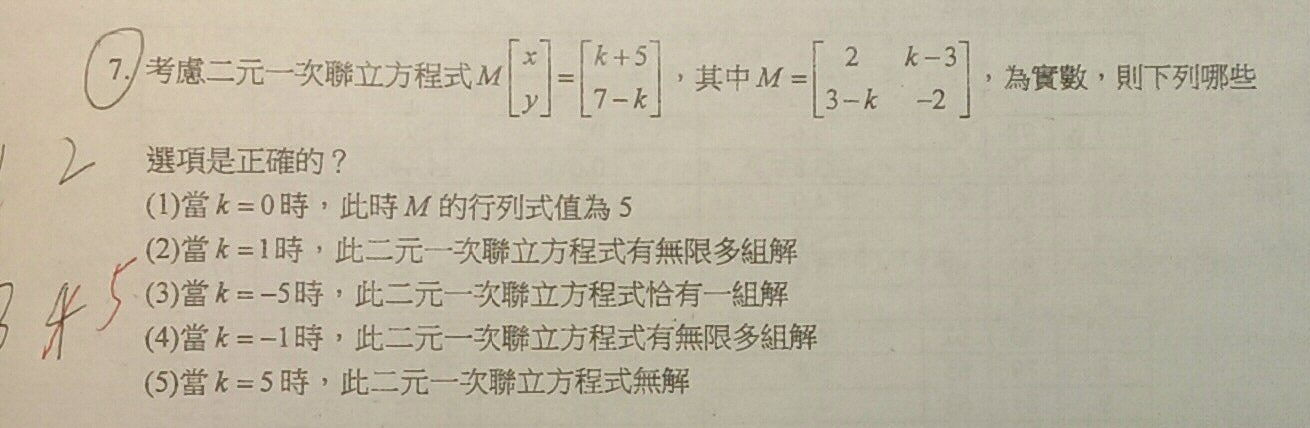 7. 考慮二元一次聯立方程式 M [x y] = [k+5 7-k],其中 M = [2 k-3 3-k -2],為實數,則下列哪些
2 選項是正確的?
(1)當 k = 0 時,此時 M 的行列式值為 5
(2)當 k = 1 時,此二元一次聯立方程式有無限多組解
3 4 5 (3)當 k = -5 時,此二元一次聯立方程式恰有一組解
(4)當 k = -1 時,此二元一次聯立方程式有無限多組解
(5)當 k = 5 時,此二元一次聯立方程式無解